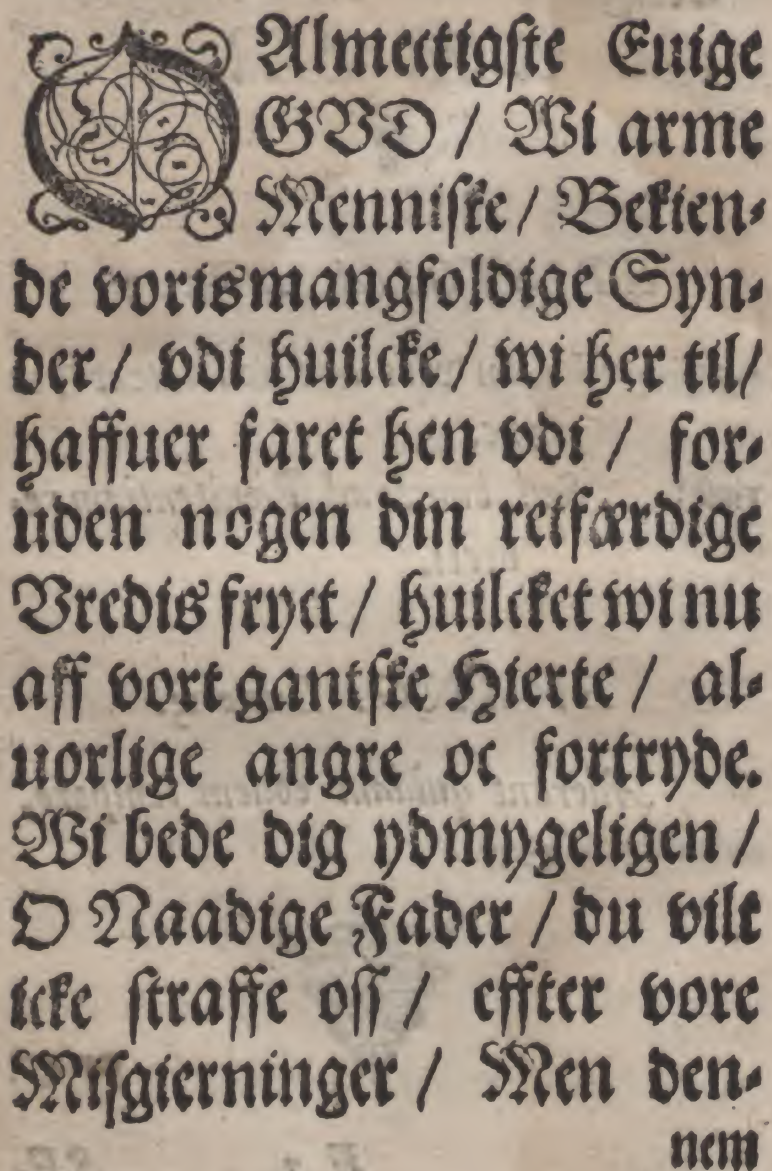 O Almectigste Euige
GVD / Wi arme
Menniske / Bekien-
de vorismangfoldige Syn-
der / vdi huilcke / wi her til/
haffuer faret hen vdi / for-
uden nogen din retfærdige
Vredis fryct / huilcket wi nu
aff vort gantske Hierte / al-
uorlige angre oc fortryde.
Wi bede dig ydmygeligen /
O Naadige Fader / du vilt
icke straffe oss / effter vore
Misgierninger / Men den-
nem